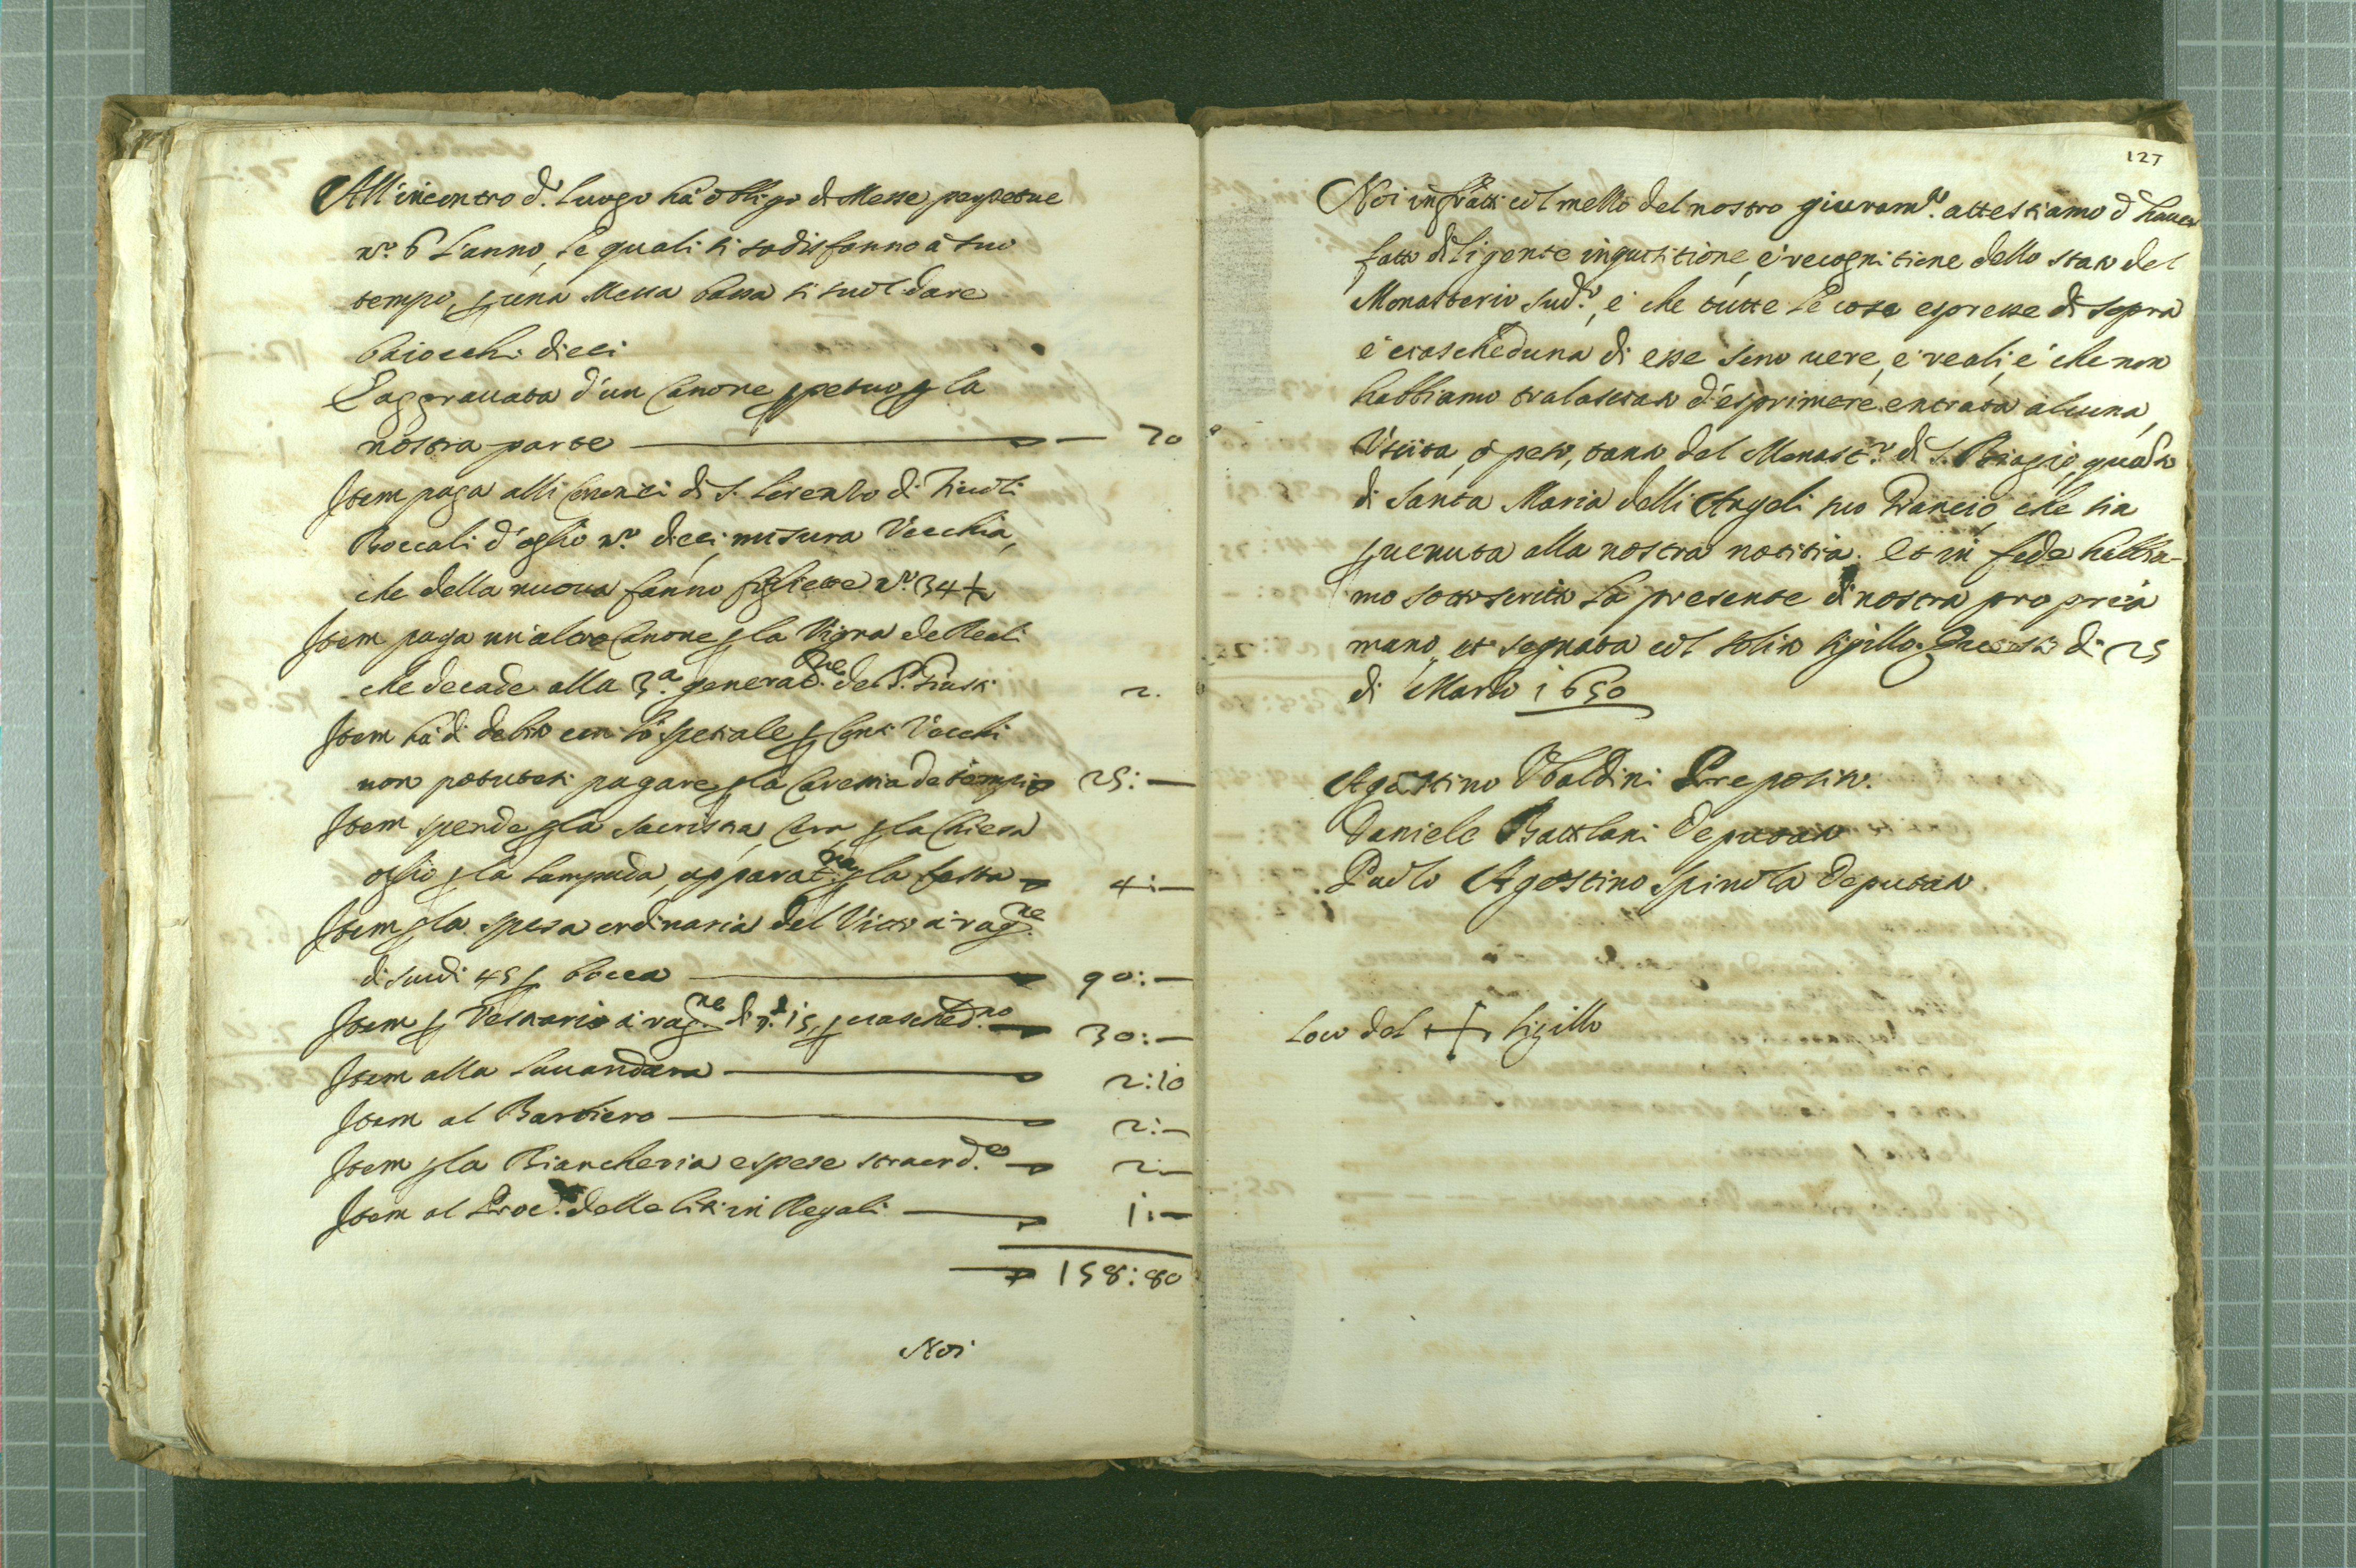 All'incontro d.º luogo hà obligo di Messe perpetue
n.º 6 l'anno, le quali si sodisfanno à suo
tempo, p una Messa bassa si suol dare
baiocchi dieci
E aggravata d'un Canone ppetuo p la
nostra parte — 70
Item paga alli Canonici di S. Lorenzo di Tivoli
Boccali d'oglio n.º dieci, misura Vecchia,
che della nuova fanno fogliette n.º 34
Item paga un'altro Canone p la Vigna de Reali
che decade alla 3.ª generat.ne de S.ri 2.
Item hà di debito con lo spetiale p Conti Vecchi
non potutosi pagare p la Carestia de tempi 25: —
Item spende p la sacristia, Cera, p la Chiesa
oglio p la lampada, apparat.ne p la festa 4: —
Item p la spesa ordinaria del Vitto à rag.ne
di scudi 45 p bocca — 90: —
Item p Vestiario à rag.ne di 15, p ciasched.no 30: —
Item alla lavandara — 2:10
Item al Barbiero — 2: —
Item p la Biancheria e spese straord.e 2: —
Item al Proc.e delle liti in Regali — 1: —
158:80
Noi
127
Noi infratti col mezzo del nostro giuram.to attestiamo d'haver
fatto diligente inquisitione, e recognitione dello stato del
Monasterio sud.º, e che tutte le cose espresse di sopra
e ciascheduna di esse sono vere, e reali, e che non
habbiamo tralasciato d'esprimere entrata alcuna,
Uscita, ò peso, tanto del Monast.º di S. Biagio, quanto
di Santa Maria delli Angeli suo che sia
pvenuta alla nostra notitia. Et in fede habbia-
mo sottoscritta la presente di nostra propria
mano, et segnata col solito sigillo. Questo dì 25
di Marzo 1650
Agostino Ubaldini Preposito.
Daniele Deputato
Paolo Agostino Spinola Deputato
Loco del + sigillo